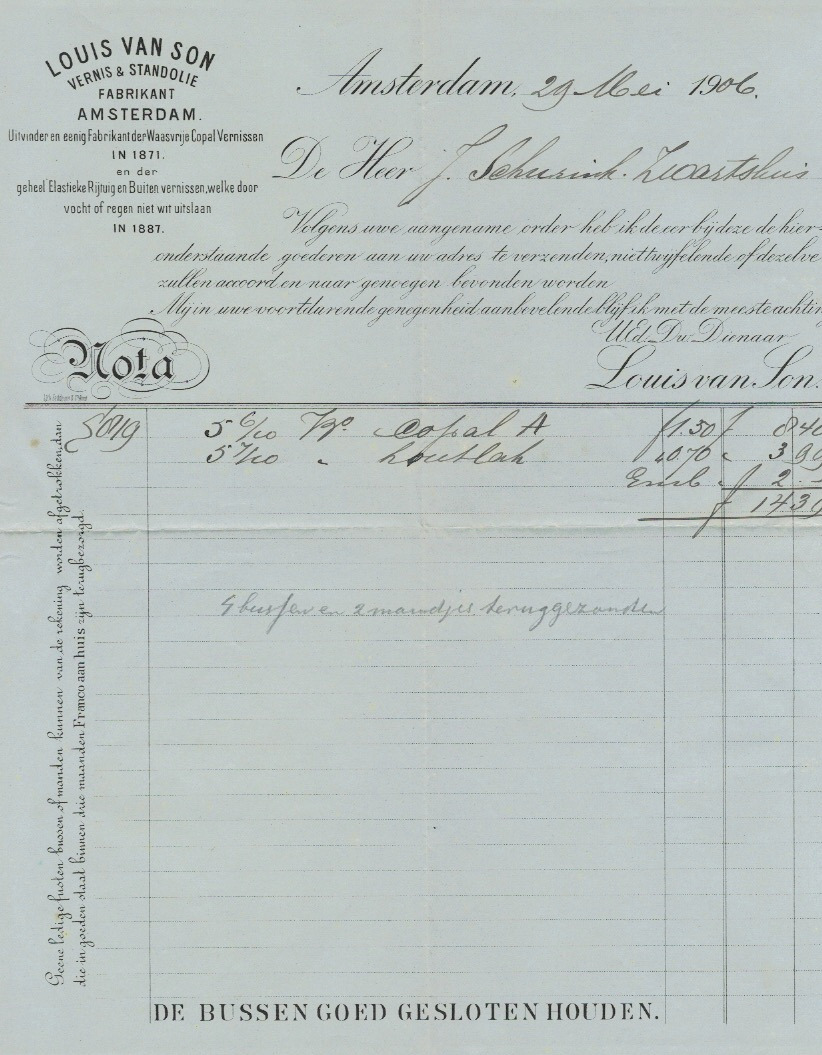 LOUIS VAN SON
VERNIS & STANDOLIE
FABRIKANT
AMSTERDAM.
Uitvinder en eenig Fabrikant der Waasvrije Copal Vernissen
IN 1871.
en der
geheel Elastieke Rijtuig en Buiten vernissen, welke door
vocht of regen niet wit uitslaan
IN 1887.
Amsterdam, 29 Mei 1906.
De Heer J. Schurink. Zwartsluis
Volgens uwe aangename order heb ik de eer bij deze de hier-
onderstaande goederen aan uw adres te verzenden, niet twijfelende of dezelve
zullen accoord en naar genoegen bevonden worden
Mij in uwe voortdurende genegenheid aanbevelende blijf ik met de meeste achtin
UEd. Dw. Dienaar
Louis van Son.
Nota
5 6/10 Ko Copal A f 1.50 f 8 40
5 7/10 " houtlak " 0.70 " 3 99
Emb. " f 2.-
f 14 39
4 bussen en 2 mandjes teruggezonden
Geene ledige fusten bussen of manden kunnen van de rekening worden afgetrokken, dan
die in goeden staat binnen drie maanden Franco aan huis zijn terugbezorgd.
DE BUSSEN GOED GESLOTEN HOUDEN.